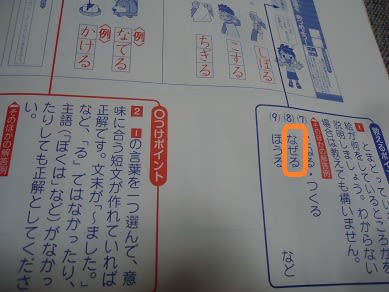 しぼる
こする
ちぎる
例
なでる
例
かける
説明しましょう。わからない
場合は教えても構いません。
(7)
る・つくる
(8)
なぜる
(9)
ほうる
など
〇つけポイント
2 1の言葉を一つ選んで、意
味に合う短文が作れていれば
正解です。文末が「〜ました。」
など、「る」ではなかったり、
主語(「ぼくは」など)がなかっ
たりしても正解としてくださ
い。
そのほかの解答例